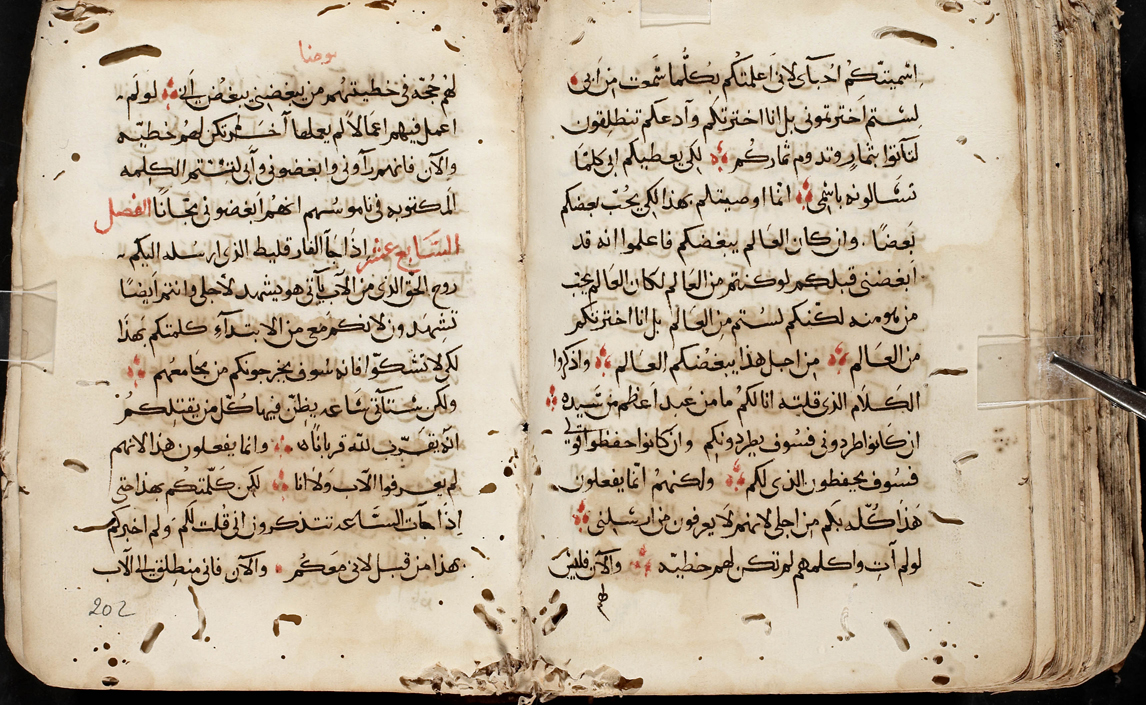 اسميتكم احباى لانى اعلمتكم بكلما سمعت من ابى
لستم اخترتمونى بل انا اخترتكم وآدعكم تنطلقون
لتاتوا بثمار وتدوم ثماركم لكى يعطيكم ابى كلما
تسالونه باسمى انما اوصيتكم بهذا لكى يحب بعضكم
بعضا . وان كان العالم يبغضكم فاعلموا انه قد
ابغضنى قبلكم لوكنتم من العالم لكان العالم يحب
من هو منه لكنكم لستم من العالم بل انا اخترتكم
من العالم من اجل هذا يبغضكم العالم واذكروا
الكلام الذى قلته انا لكم ما من عبد اعظم من سيده
ان كانوا طردونى فسوف يطردونكم وان كانوا حفظوا قولى
فسوف يحفظون الذى لكم ولكنهم انما يفعلون
هذا كله بكم من اجلى لانهم لا يعرفون من ارسلنى
لو لم آت واكلمهم لم تكن لهم خطيه والآن فليس
لهم
يوحنا
لهم حجه فى خطيتهم من يبغضنى يبغض ابى لو لم
اعمل فيهم اعمالا لم يعلمها آخر لم تكن لهم خطيه
والآن فانهم راونى وابغضونى وابى لتتم الكلمه
المكتوبه فى ناموسهم انهم ابغضونى مجانا الفصل
السابع عشر اذا جا الفارقليط الذى ارسله اليكم
روح الحق الذى من الآب ياتى هو يشهد لاجلى وانتم ايضا
تشهدون لانكم معى من الابتداء كلمتكم بهذا
لكى لا تشكوا فانه سوف يخرجونكم من مجامعهم
ولكن ستاتى ساعه يظن فيها كل من يقتلكم
انه يقرب لله قربانا وانما يفعلون هذا لانهم
لم يعرفوا الآب ولا انا لكن كلمتكم بهذا حتى
اذا جات الساعه تتذكرون انى قلت لكم ولم اخبركم
بهذا من قبل لانى معكم والآن فانى منطلق الى الآب
202